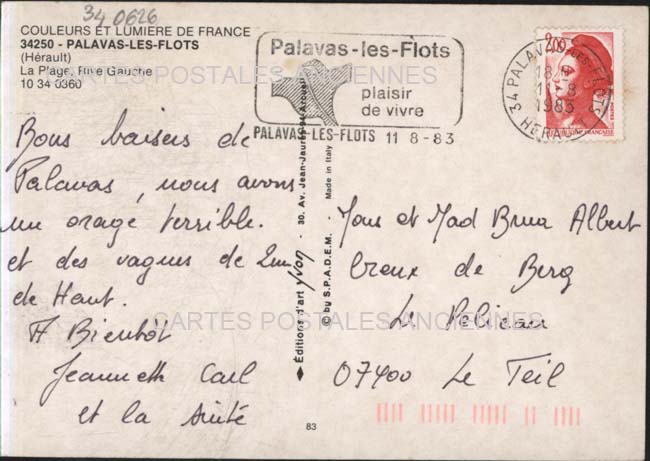 34 0626
COULEURS ET LUMIERE DE FRANCE
34250 - PALAVAS-LES-FLOTS
(Hérault)
La Plage, Rive Gauche
10 34 0360
Palavas-les-Flots
plaisir
de vivre
PALAVAS-LES-FLOTS 11 8-83
2,00
34 PALAVAS LES FLOTS
18 H
11-8
1983
HERAULT
CARTES POSTALES ANCIENNES
Bons baisers de
Palavas, nous avons
un orage terrible.
et des vagues de 2m
de Haut.
A Bientôt
Jeanneth Carl
et la
Éditions d'art yvon - 30, Av. Jean-Jaurès
© by S.P.A.D.E.M. - Made in Italy
Mons et Mad Brua Albert
Creux de Berg
Le Pelican
07400 Le Teil
CARTES POSTALES ANCIENNES
83